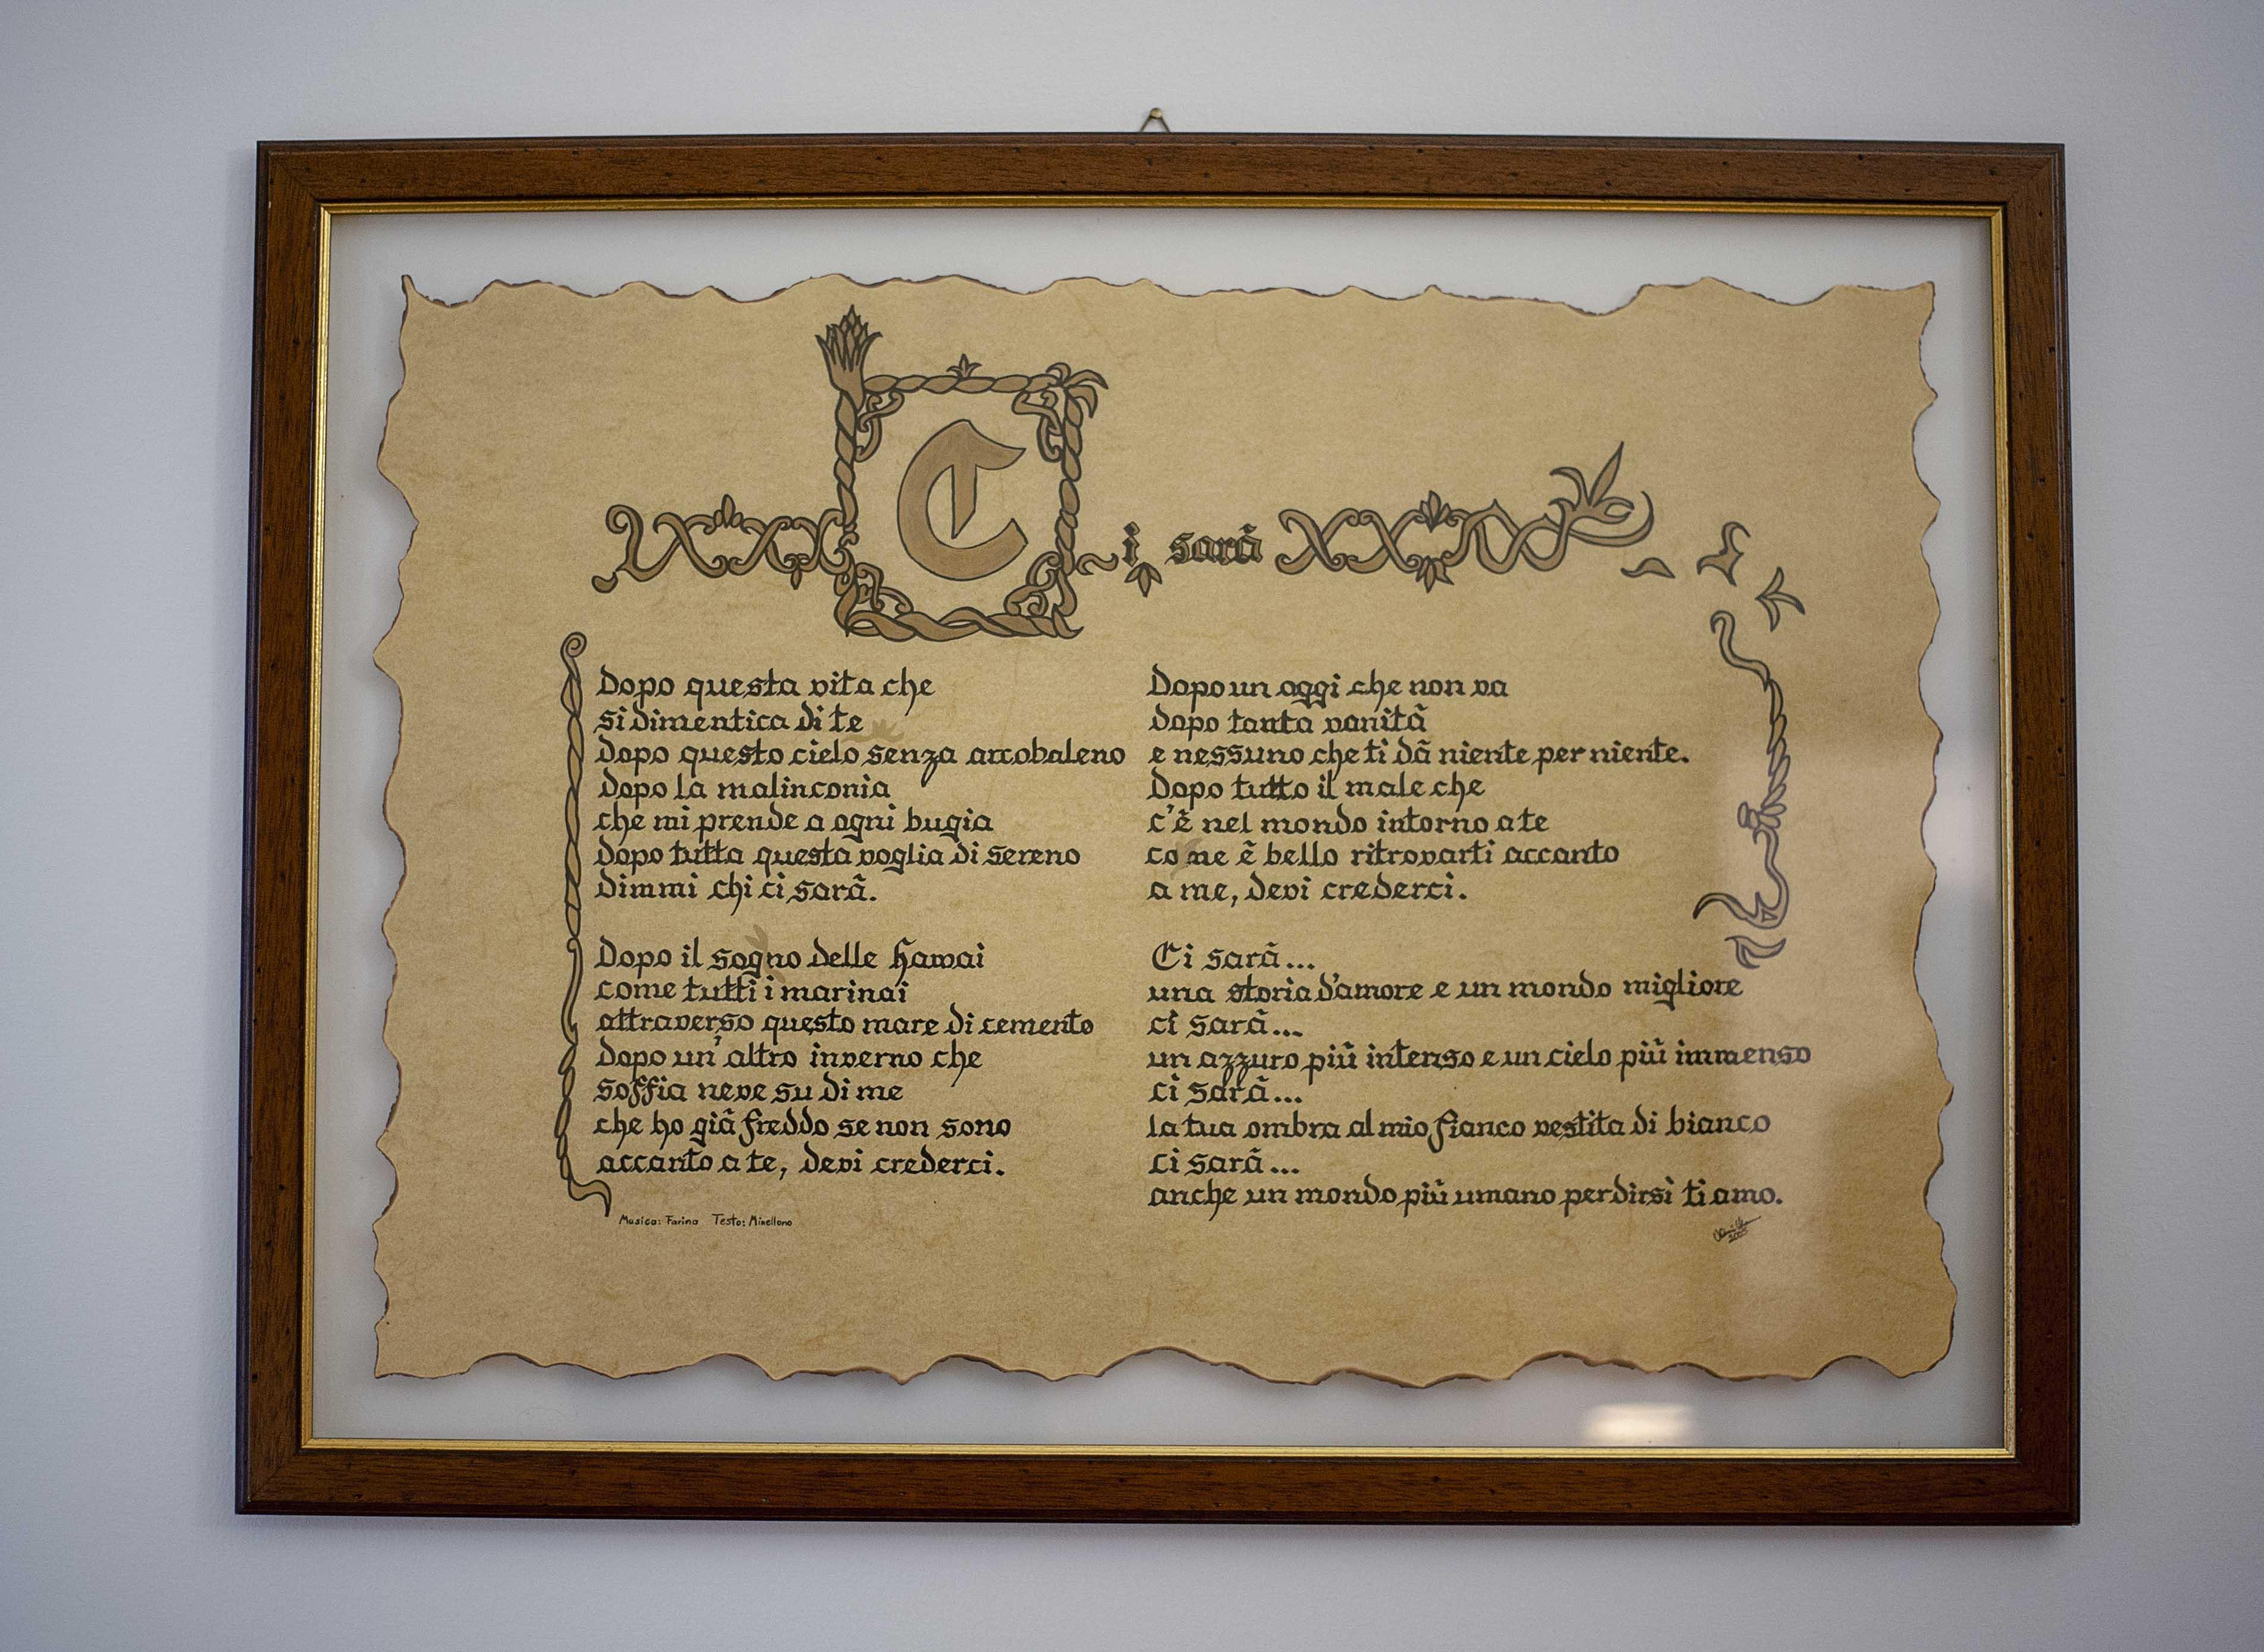 Ci sarà
Dopo questa vita che
si dimentica di te
dopo questo cielo senza arcobaleno
dopo la malinconia
che mi prende a ogni bugia
dopo tutta questa voglia di sereno
dimmi chi ci sarà.
Dopo il sogno delle Hawai
come tutti i marinai
attraverso questo mare di cemento
dopo un'altro inverno che
soffia neve su di me
che ho già freddo se non sono
accanto a te, devi crederci.
Musica: Farina Testo: Minellono
Dopo un oggi che non va
dopo tanta vanità
e nessuno che ti dà niente per niente.
Dopo tutto il male che
c'è nel mondo intorno a te
come è bello ritrovarti accanto
a me, devi crederci.
Ci sarà...
una storia d'amore e un mondo migliore
ci sarà...
un azzuro più intenso e un cielo più immenso
ci sarà...
la tua ombra al mio fianco vestita di bianco
ci sarà...
anche un mondo più umano per dirsi ti amo.